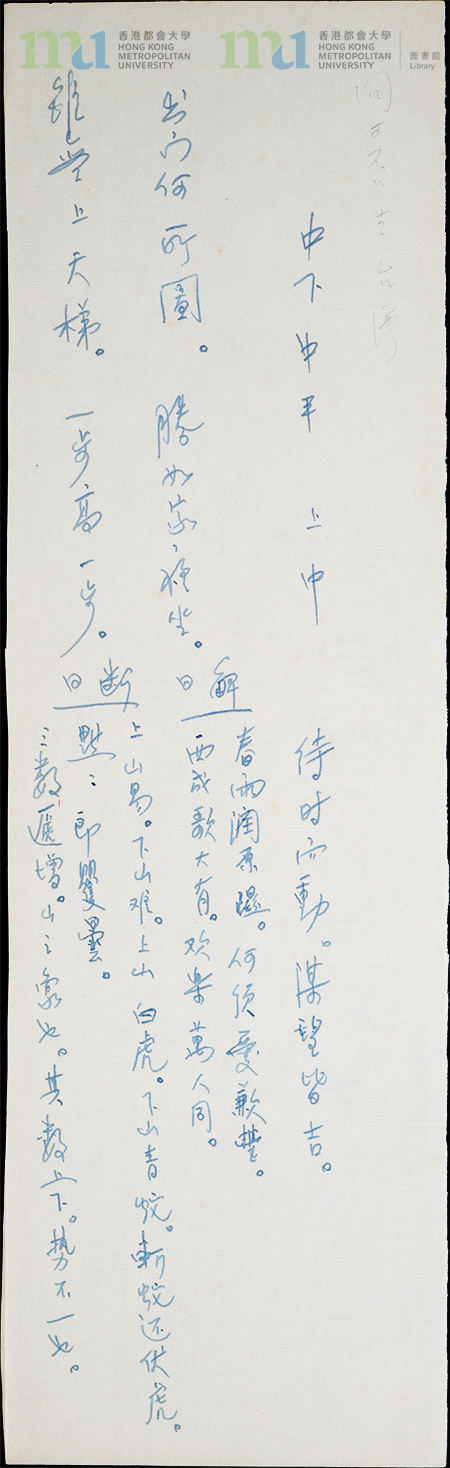 香港都會大學
HONG KONG
METROPOLITAN
UNIVERSITY
香港都會大學
HONG KONG
METROPOLITAN
UNIVERSITY
圖書館
Library
問可否去台灣
中下中平 上中
待時而動。謀望皆吉。
出門何所圖。勝如家裡坐。
解曰
春雨潤原隰。何須憂歉豐。
西成歌大有。欢樂萬人同。
雖無上天梯。一步高一步。
斷曰
上山易。下山难。上山白虎。下山青蛇。斬蛇还伏虎。
即瞿曇。
三數遞增。山之象也。其數上下。势不一也。